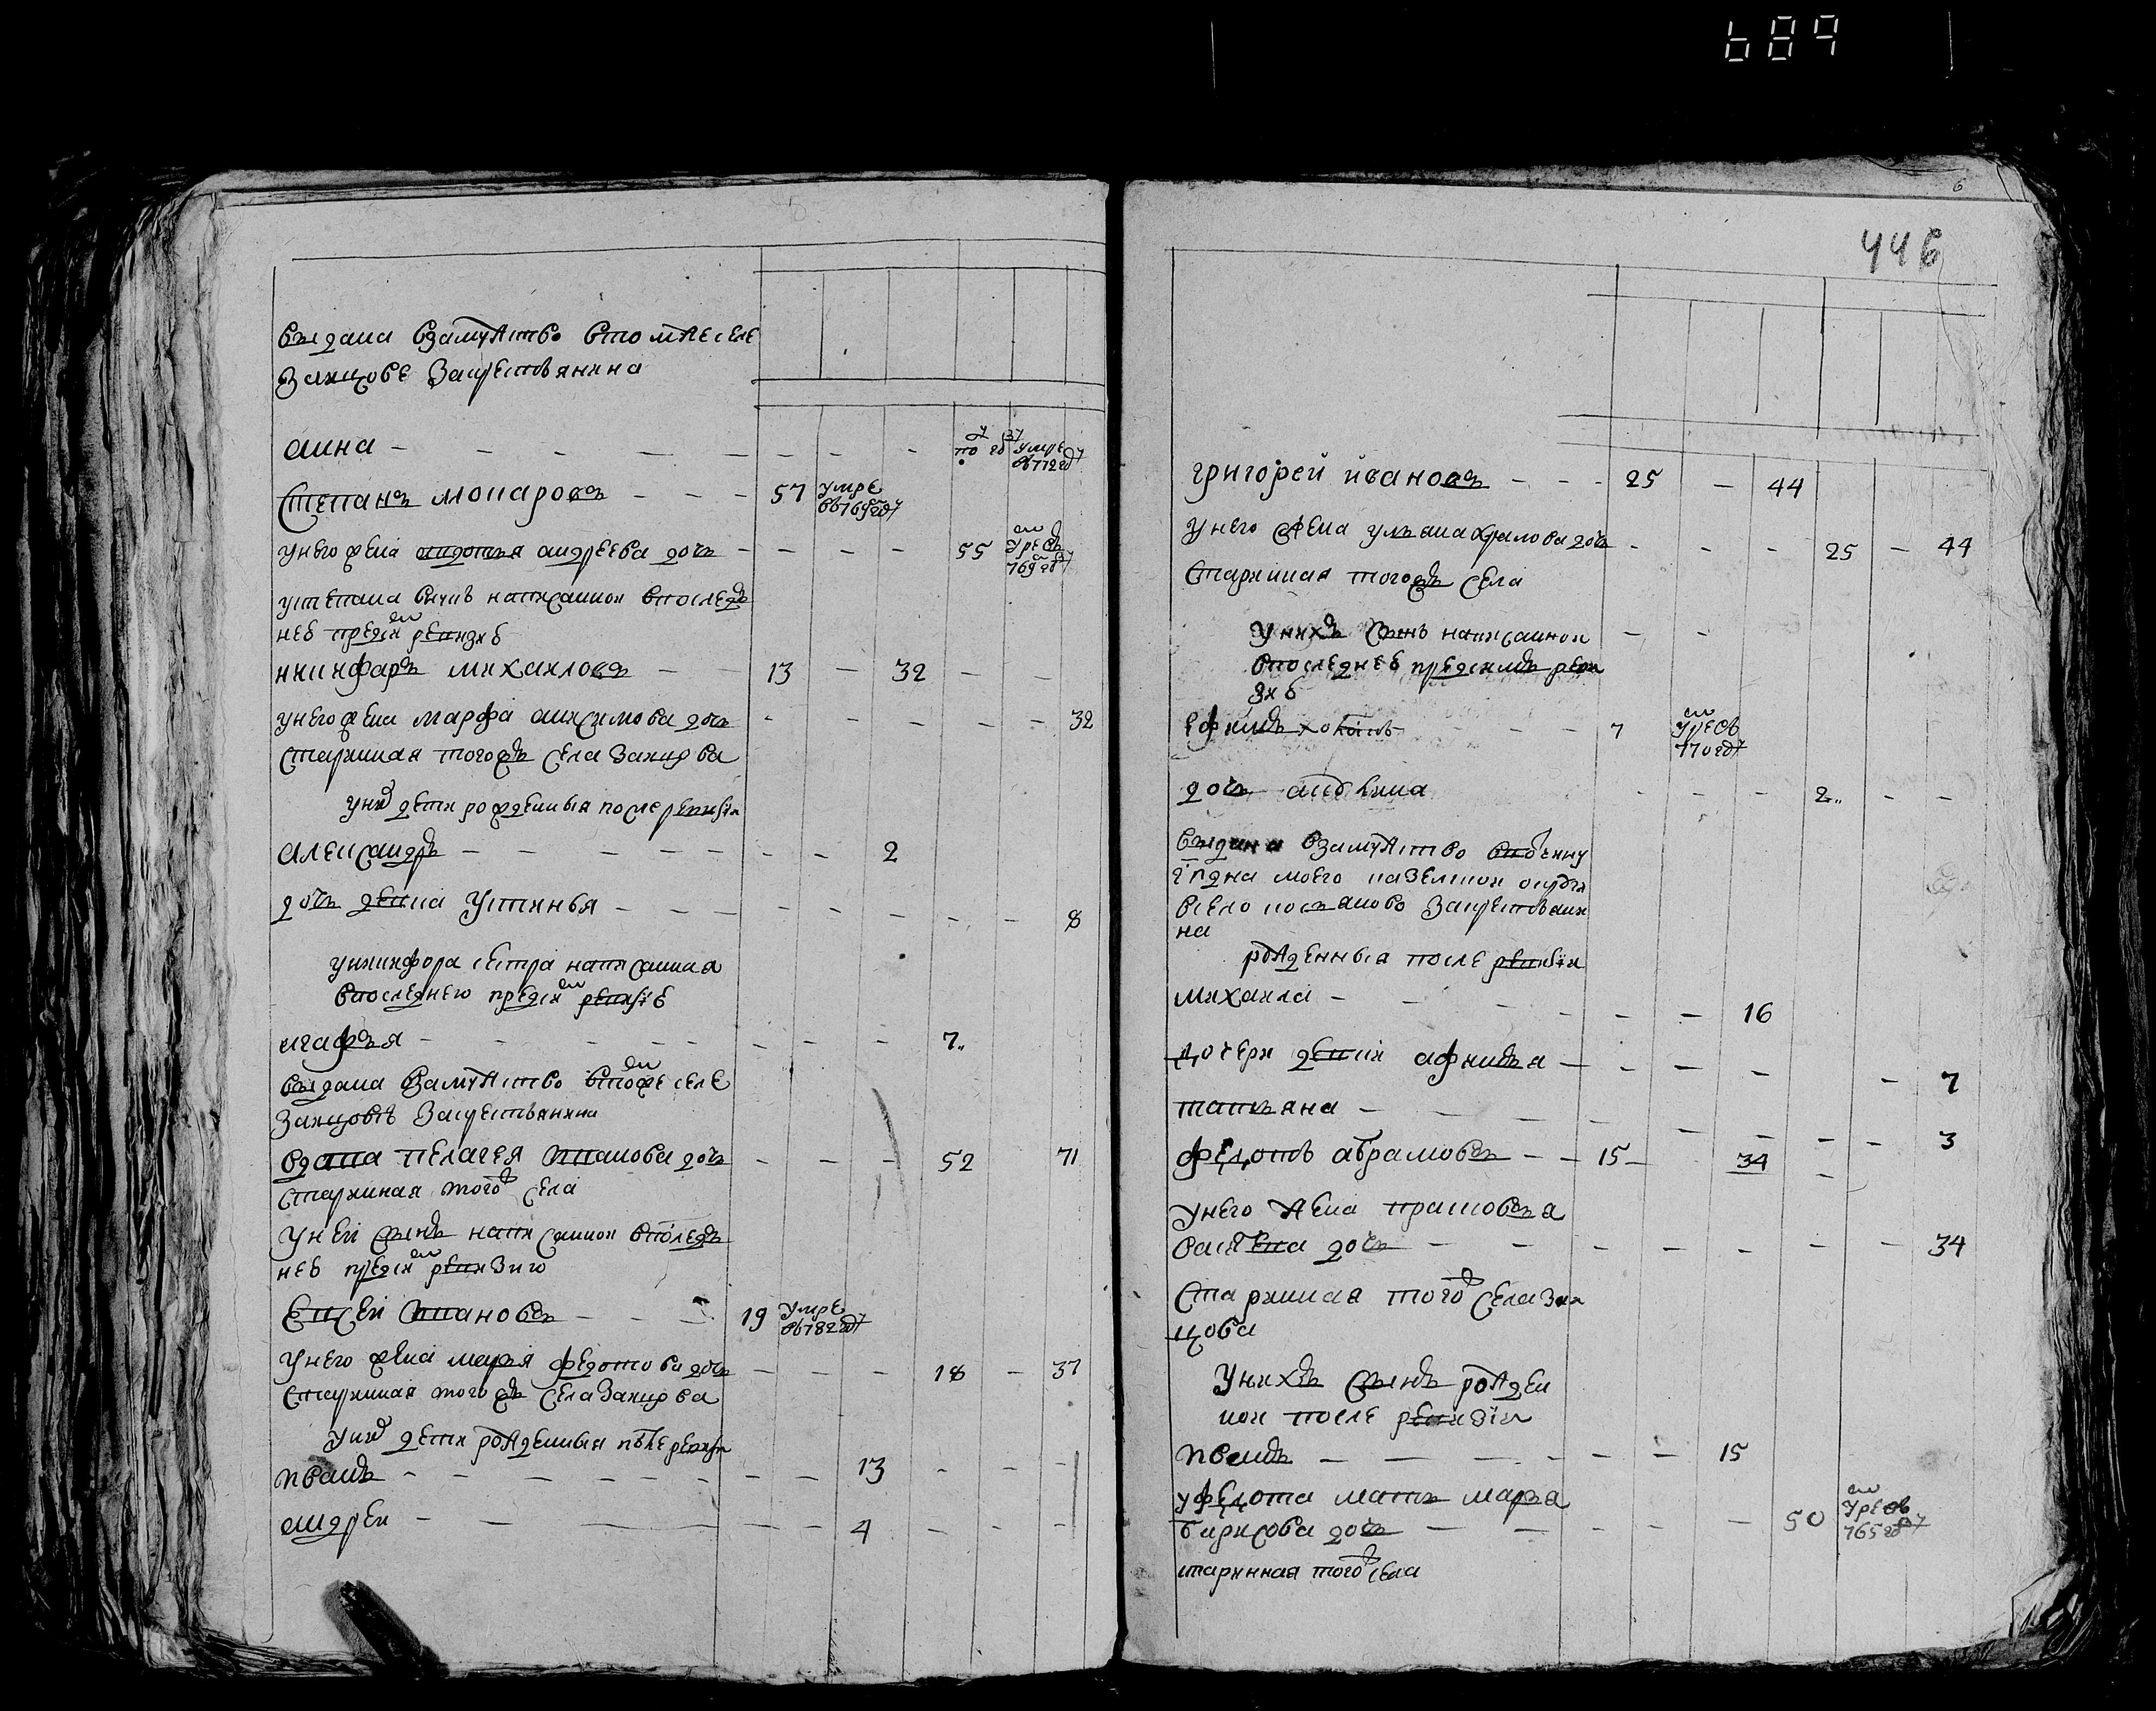 689
выдана взамужство втомже селе
Заицове Закрестьянина
анна — — — — — — — —
умре в 772 году
Степанъ Монаровъ — — — 57 умре в 769 году
унего жена андреева дочь — — — — 55 умре въ 769 году
устепана внукъ написанной впослед
ней предъ сим ревизие
никифаръ михаиловъ — — 13 — 32 — —
унего жена марфа анисимова дочь — — — — — 32
старинная тогожъ села Заицова
уних дети рожденныя после ревизии
александръ — — — — — — — 2
дочь девка Устинья — — — — — — — — 8
уникифора сестра написанная
впоследнею предъ сим ревизие
агафья — — — — — — — 7
выдана взамужство втомже селе
Заицове Закрестьянина
вдова пелагея иванова дочь — — — 52 71
старинная тогож села
унеи сынъ написанной впослед
ней предъ сим ревизию
Евсеи ивановъ — — — 19 умре в 782 году
унего жена марья федотова дочь — — — 18 — 37
старинная тогожъ села Заицова
уних дети рожденныя после ревизии
иванъ — — — — — — — — 13 — — —
андреи — — — — — — 4 — — —
446
6
григорей ивановъ — — — 25 — 44
унего жена ульяна дочь — — — 25 — 44
старинная тогожъ села
унихъ сынъ написанной — —
впоследней предъ симъ реви
зие
ефимъ — — — 7 умре въ 770 году
дочь авдотья — — — 2 — —
выдана взамужство вотчину
моего
всело Закрестьяни
на
рожденныя после ревизии
михаила — — — — — — — 16
дочери девки афимья — — — — — 7
татьяна — — — — — — — — 3
федотъ абрамовъ — — 15 — 34 —
унего жена прасковья
васильева дочь — — — — — — — 34
Старинная тогож села Заи
цова
унихъ сынъ рожден
ной после ревизии
иванъ — — — — — — 15
уфедота мать марья
барисова дочь — — — — 50 умре въ 765 году
старинная тогож села